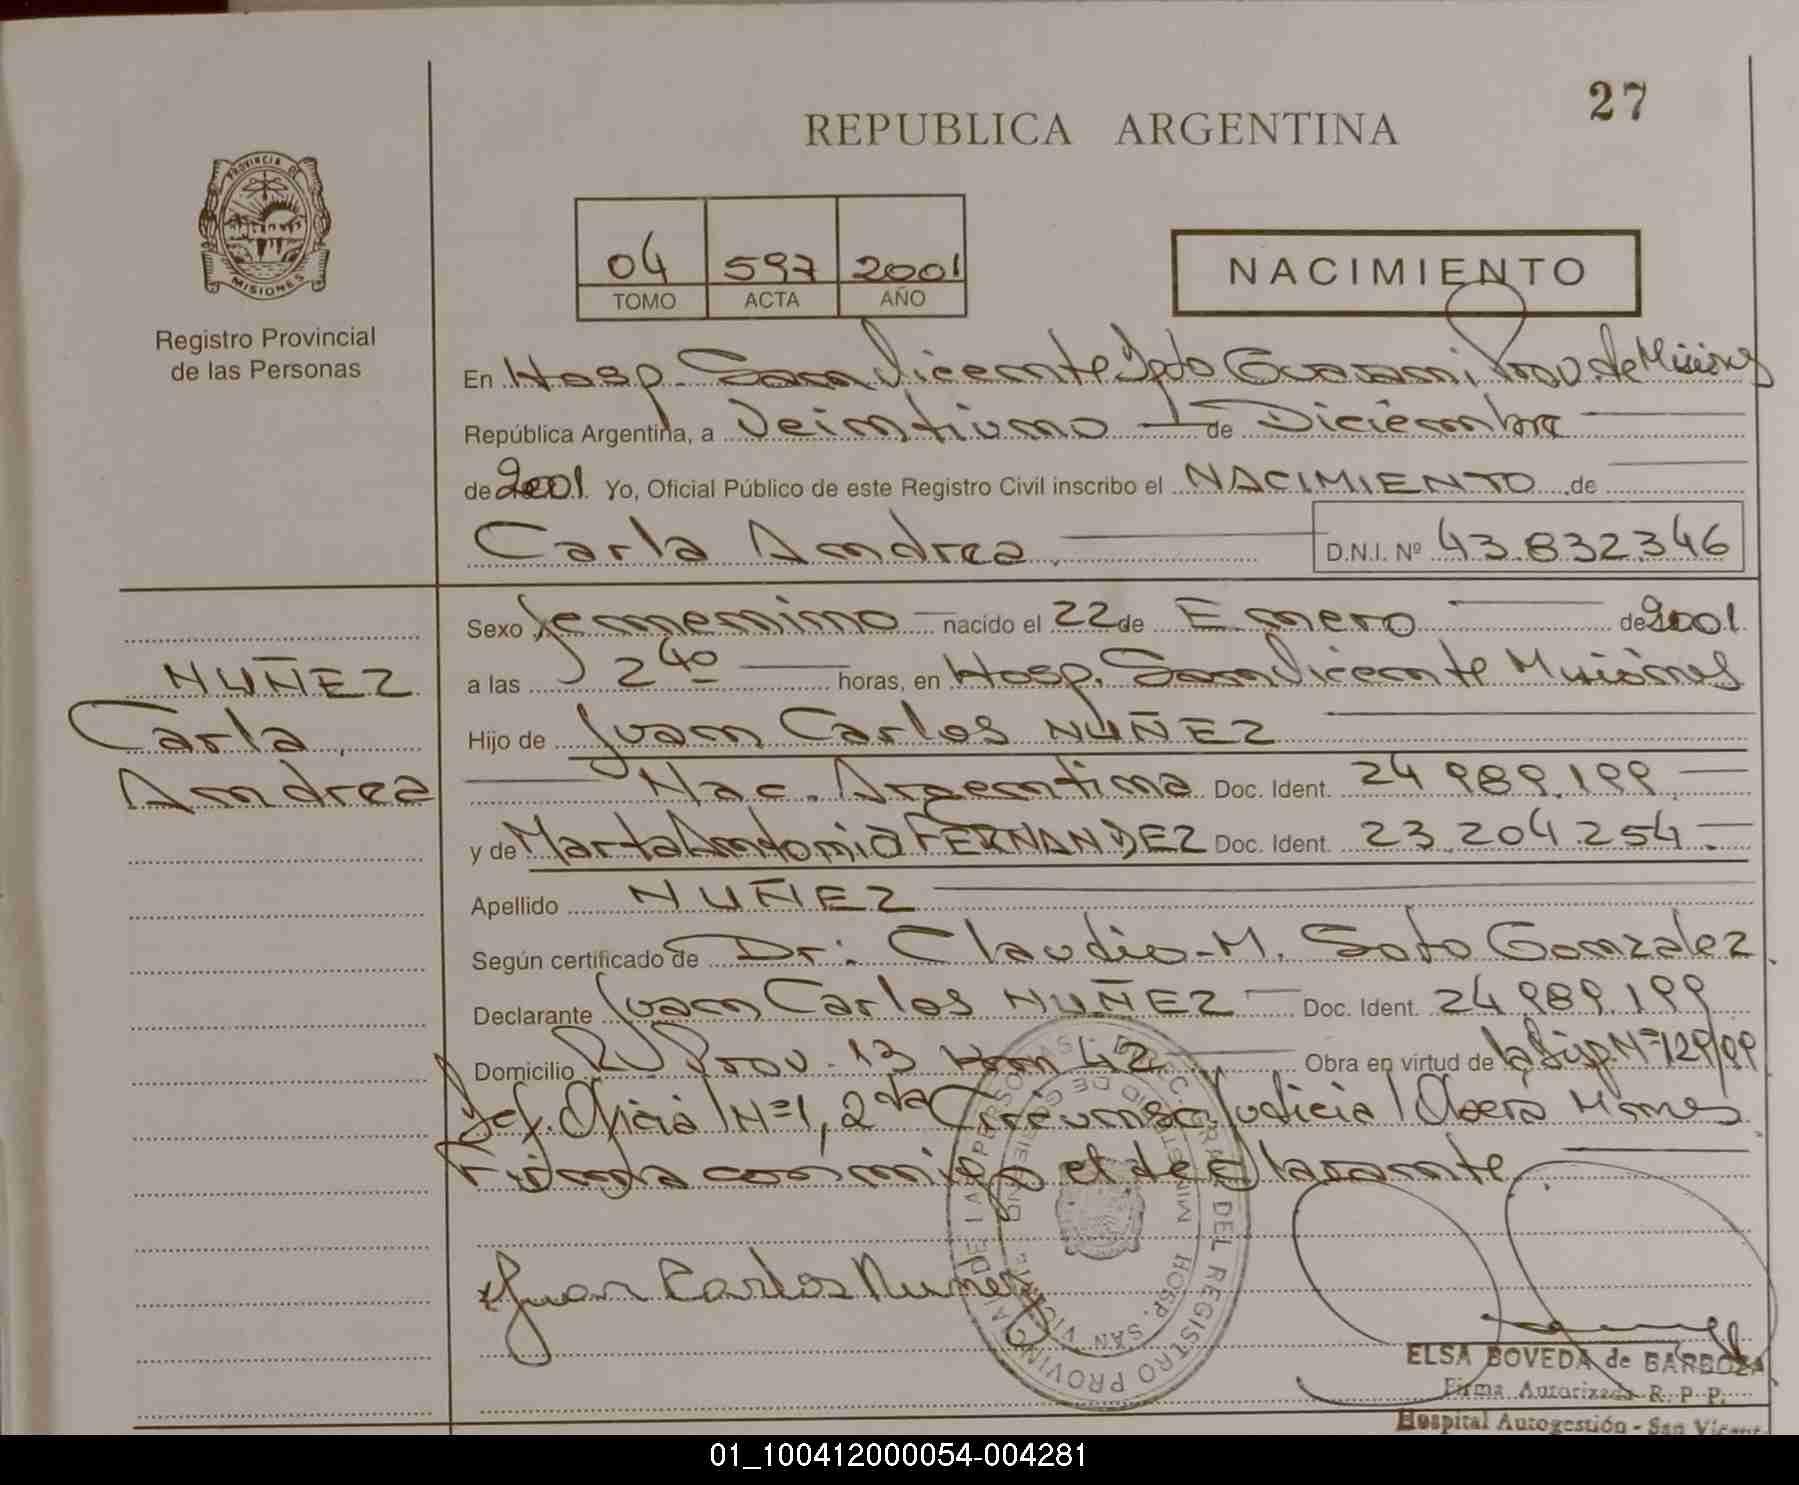 27
REPUBLICA ARGENTINA
PROVINCIA DE
MISIONES
Registro Provincial
de las Personas
04 597 2001
TOMO ACTA AÑO
NACIMIENTO
En Hosp. San Vicente Dpto Guarani Prov. de Misiones
República Argentina, a Veintiuno de Diciembre
de 2001 Yo, Oficial Público de este Registro Civil inscribo el NACIMIENTO de
Carla Andrea D.N.I. Nº 43.832.346
Sexo femenino nacido el 22 de Enero de 2001
a las 2 40 horas, en Hosp. San Vicente Misiones
Hijo de Juan Carlos NUÑEZ
Nac. Argentina Doc. Ident. 24 989.199
y de Marta Antonia FERNANDEZ Doc. Ident. 23.204.254
Apellido NUÑEZ
Según certificado de Dr: Claudio M. Soto Gonzalez
Declarante Juan Carlos NUÑEZ Doc. Ident. 24 989.199
Domicilio R Prov. 13 Km 42 Obra en virtud de la Disp. Nº 129/99
Def. Oficial Nº 1, 2da Circunsc. Judicial Obera Mnes
Firma conmigo el declarante
NUÑEZ
Carla
Andrea
Juan Carlos Nuñez
DIREC. GRAL DEL REGISTRO PROVINCIAL DE LAS PERSONAS
MINISTERIO DE GOBIERNO
HOSP. SAN VICENTE
ELSA BOVEDA de BARBOZA
Firma Autorizada R. P. P.
Hospital Autogestión - San Vicente
01_100412000054-004281